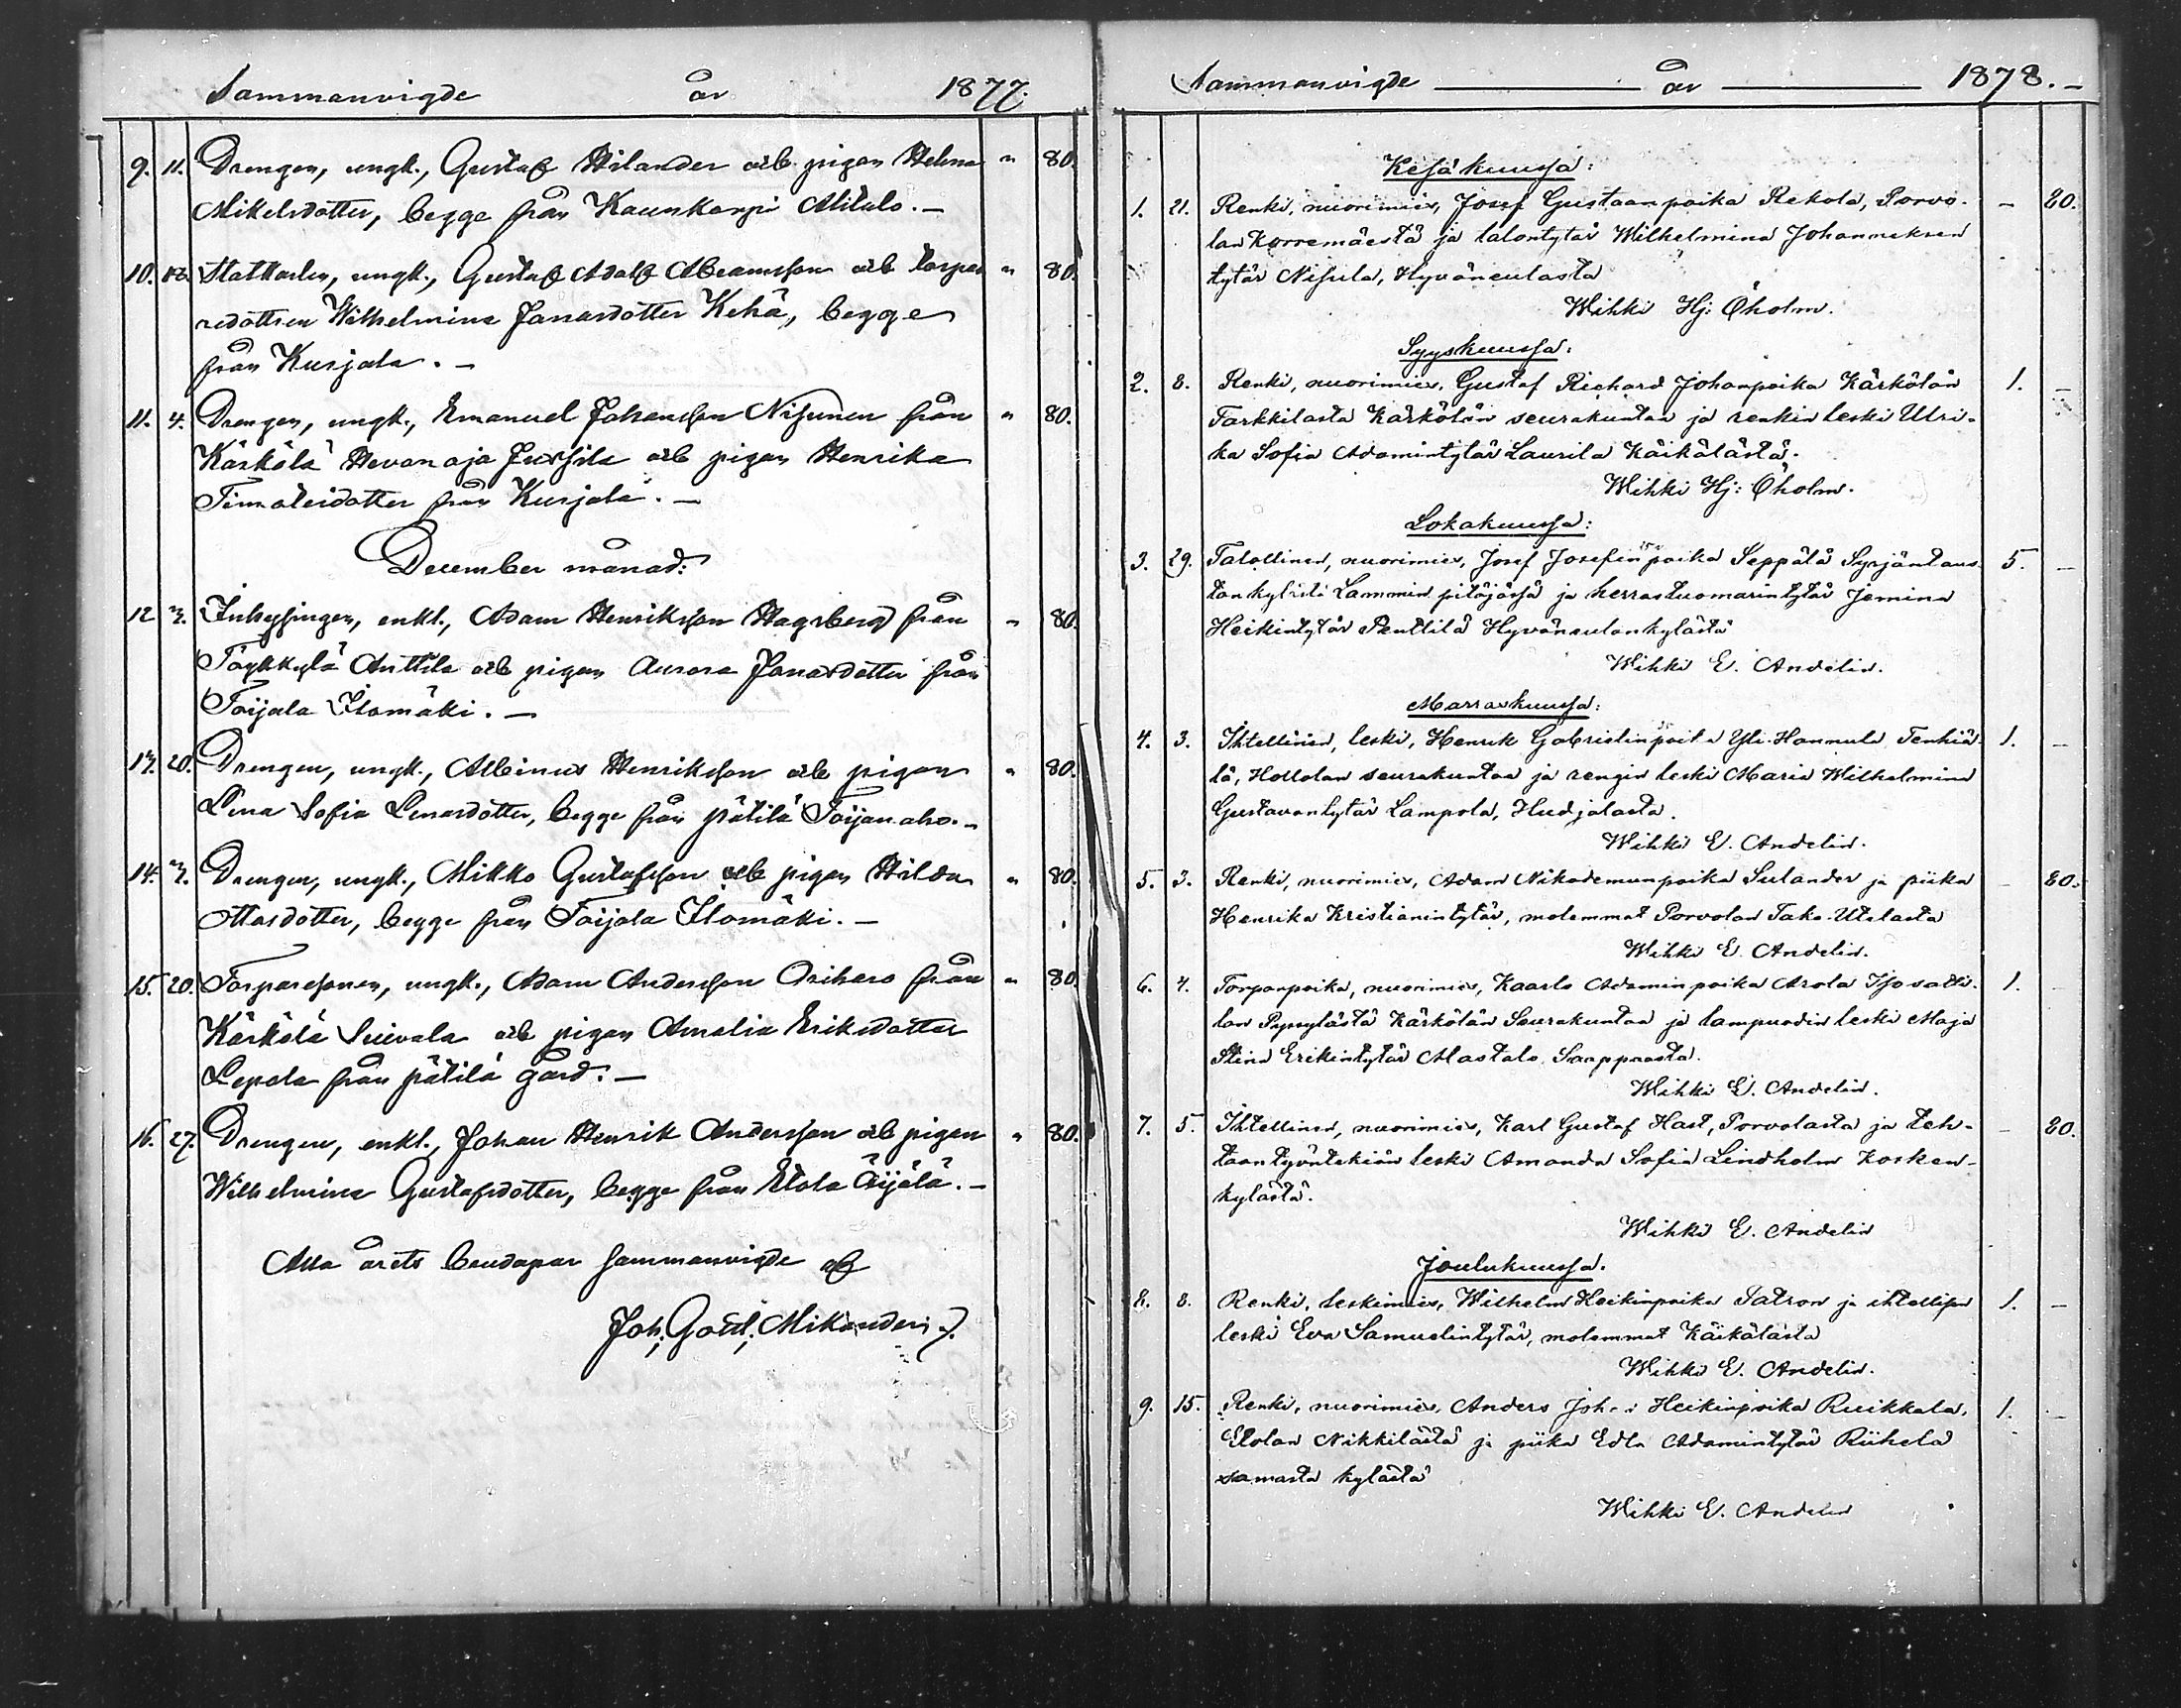 Sammanvigde år 1877.
9. 11. Drengen, ungk., Gustaf Hilander och pigan Helena " 80.
Mikelsdotter, begge från Kaunkorpi Alitalo. –
10. Statkarlen, ungk., Gustaf Adolf Abramsson och torpa- " 80.
redottren Wilhelmina Jonasdotter Kehä, begge
från Kurjala. –
11. 4. Drengen, ungk., Emanuel Johansson Nisunen från " 80.
Kärkölä Hevonoja Jussila och pigan Henrika
Timoteidotter från Kurjala. –
December månad:
12 Inhysingen, enkl., Adam Henriksson Hagsberg från " 80.
Töykkylä Anttila och pigan Aurora Jonasdotter från
Toijala Ilomäki. –
13. 20. Drengen, ungk., Albinus Henriksson och pigan " 80.
Lena Sofia Lenasdotter, begge från Pätilä Toijanaho. –
14. Drengen, ungk., Mikko Gustafsson och pigan Hilda " 80.
Ottosdotter, begge från Toijala Ilomäki. –
15. 20. Torparesonen, ungk., Adam Andersson Oriharo från " 80.
Kärkölä Suivala och pigan Amalia Eriksdotter
Lepola från Pätilä gård. –
16. 27. Drengen, enkl., Johan Henrik Andersson och pigan " 80.
Wilhelmina Gustafsdotter, begge från Etola Äijälä. –
Alla årets brudapar sammanvigde af
Joh. Gottl. Mikander
Sammanvigde år 1878. –
Kesäkuussa:
1. 21. Renki, nuorimies, Josef Gustaanpoika Rekola, Porvo- – 80.
lan Korremäestä ja talontytär Wilhelmina Johanneksen
tytär Nisula, Hyväneulasta
Wihki Hj: Öholm.
Syyskuussa:
2. 8. Renki, nuorimies, Gustaf Richard Johanpoika Kärkölän 1. –
Tarkkilasta Kärkölän seurakuntaa ja renkin leski Ulri-
ka Sofia Adamintytär Laurila Käikälästä.
Wihki Hj: Öholm.
Lokakuussa:
3. 29. Talollinen, nuorimies, Josef Josefin poika Seppälä Syrjäntaus- 5. –
tan kylästä Lammin pitäjässä ja herrastuomarintytär Jemina
Heikintytär Penttilä Hyväneulankylästä
Wihki E. Andelin.
Marraskuussa:
4. 3. Ihtellinen, leski, Henrik Gabrielin poika Yli-Hannula Tenhiä- 1. –
lä, Hollolan seurakuntaa ja rengin leski Maria Wilhelmina
Gustavantytär Lampola, Hudjalasta.
Wihki E. Andelin.
5. 3. Renki, nuorimies, Adam Nikodemunpoika Sulander ja piika – 80.
Henrika Kristianintytär, molemmat Porvolan Tako-Utelasta
Wihki E. Andelin.
6. 4. Torparpoika, nuorimies, Kaarlo Adamin poika Arola Isosatti- 1. –
lan Pyssylästä Kärkölän Seurakuntaa ja lampuodin leski Maja
Stina Erikintytär Alastalo
Wihki E. Andelin.
7. 5. Ihtellinen, nuorimies, Karl Gustaf Hast, Porvolasta ja teh- – 80.
taantyöntekiän leski Amanda Sofia Lindholm Kosken-
kylästä.
Wihki E. Andelin
Joulukuussa.
8. 8. Renki, leskimies, Wilhelm Heikinpoika Patron ja ihtellisen 1. –
leski Eva Samuelintytär, molemmat Käikälästä
Wihki E. Andelin.
9. 15. Renki, nuorimies, Anders Joh. Heikinpoika Ruikkala, 1. –
Etolan Nikkilästä ja piika Edla Adamintytär Riihelä
samasta kylästä
Wihki E. Andelin